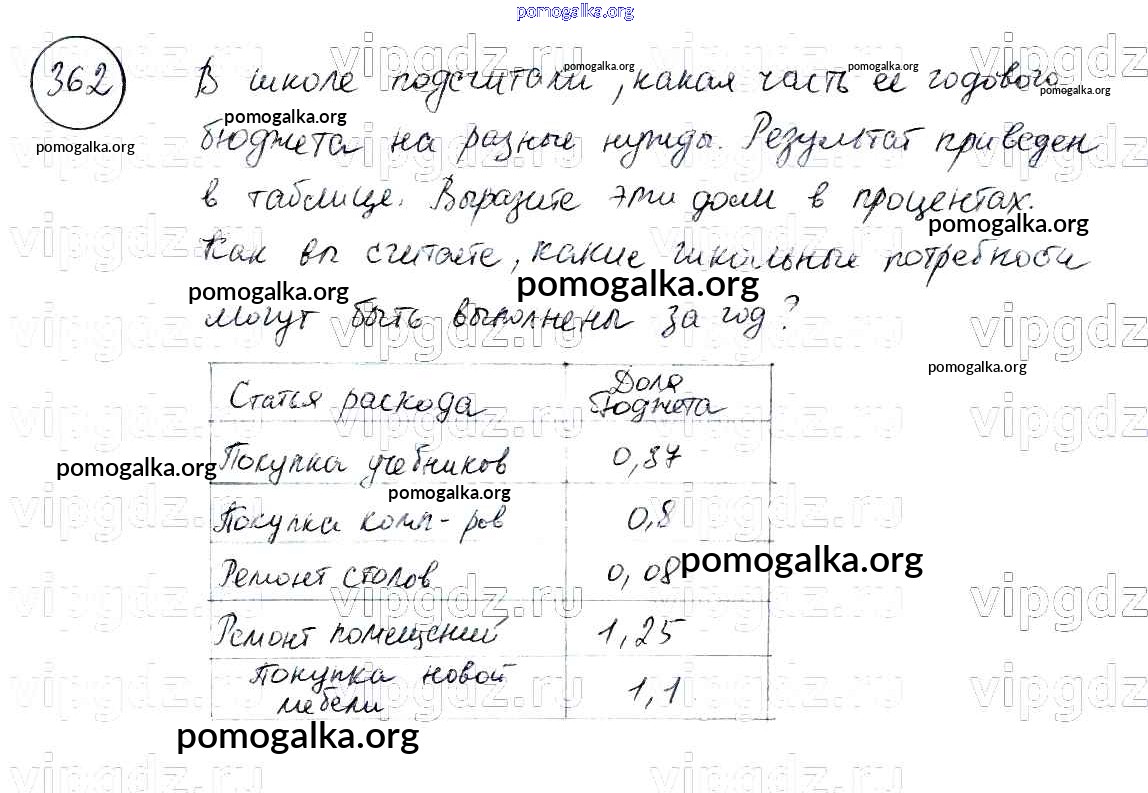 pomogalka.org
362 В школе подсчитали, какая часть ее годового
бюджета на разные нужды. Результат приведен
в таблице. Выразите эти доли в процентах.
Как вы считаете, какие школьные потребности
могут быть выполнены за год?
Статья расхода Доля бюджета
Покупка учебников 0,37
Покупка комп-ров 0,8
Ремонт столов 0,08
Ремонт помещений 1,25
Покупка новой мебели 1,1
pomogalka.org
vipgdz.ru